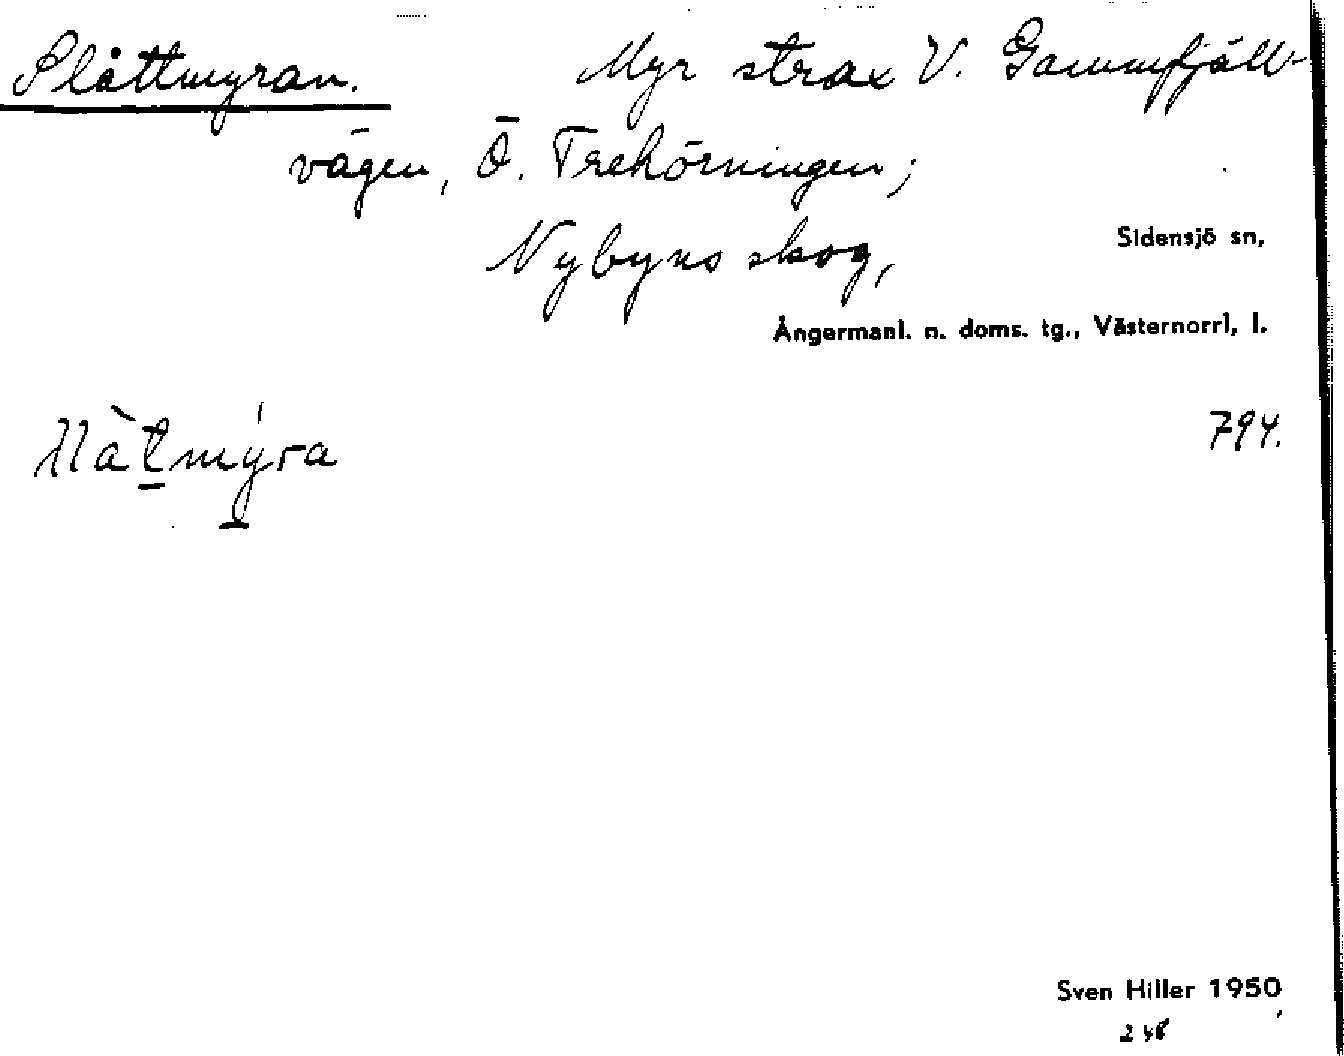 Slåttmyran. Myr strax V. Gammfjäll-
vägen, Ö. Trehörningen;
Nybyns skog,
Sidensjö sn,
Ångermanl. n. doms. tg., Västernorrl. l.
794.
Sven Hiller 1950